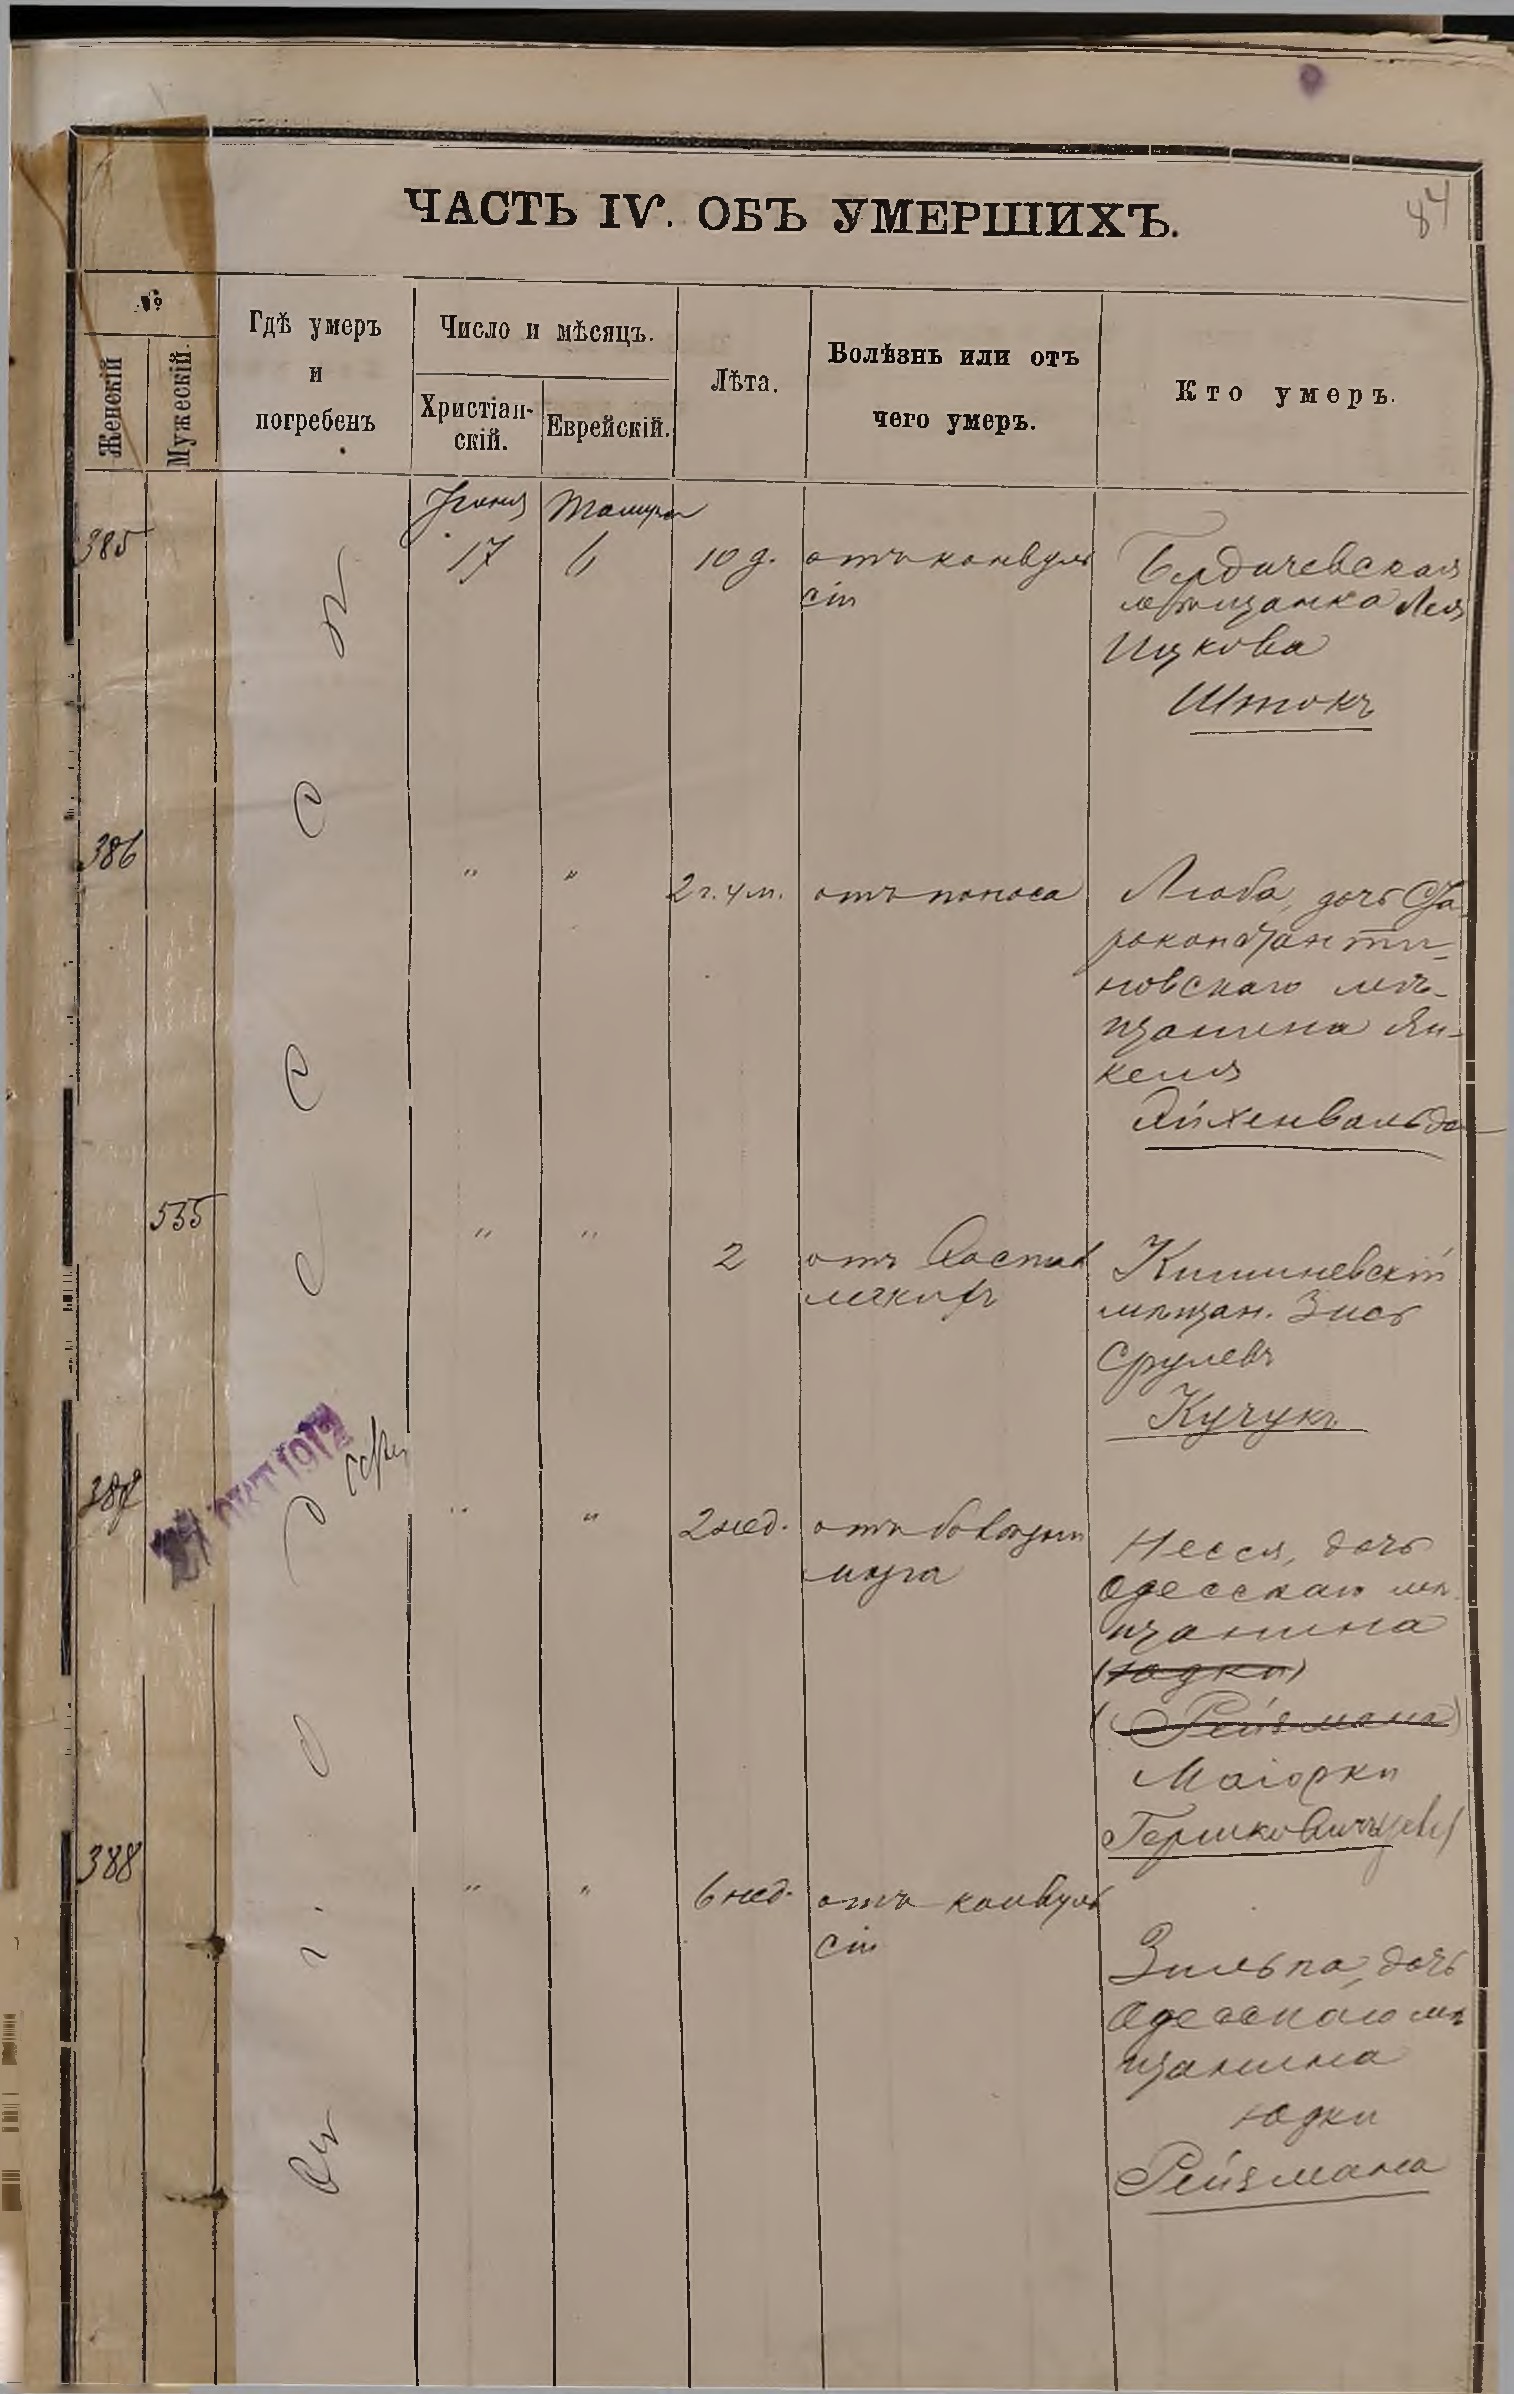 84
ЧАСТЬ IV. ОБЪ УМЕРШИХЪ.
№
Женскій
Мужескій.
Гдѣ умеръ
и
погребенъ
Число и мѣсяцъ.
Христіан-
скій.
Еврейскій.
Лѣта.
Болѣзнь или отъ
чего умеръ.
Кто умеръ.
Іюня
385
17
6
10 д.
отъ конвуль
сіи
Бердичевская
мѣщанка Лея
Ицкова
Штокъ
386
"
"
2 г. 4 м.
отъ поноса
Люба, дочь Ста-
роконстанти-
новскаго мѣ-
щанина Ян-
келя
Айхенвальда
535
"
"
2
отъ воспал
легкихъ
Кишиневскій
мѣщан. Зись
Срулевъ
Кучукъ
387
"
"
2 нед.
мозга
Несся, дочь
Одесскаго мѣ
щанина
(Юдки)
(Рейзмана)
Маіорки
388
"
"
6 нед.
отъ конвуль
сіи
Зильпа, дочь
Одесскаго мѣ
щанина
Юдки
Рейзмана
Одесса
1912